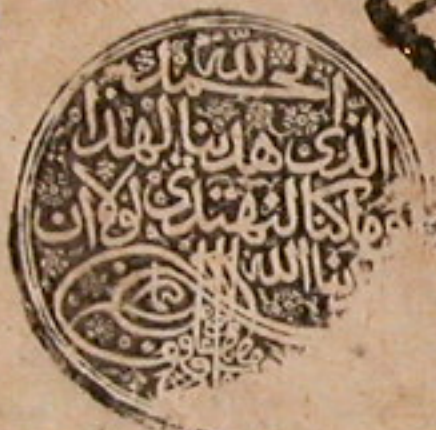 الحمد لله
الذى هدينا لهذا
وما كنا لنهتدي لولا ان
ينا الله